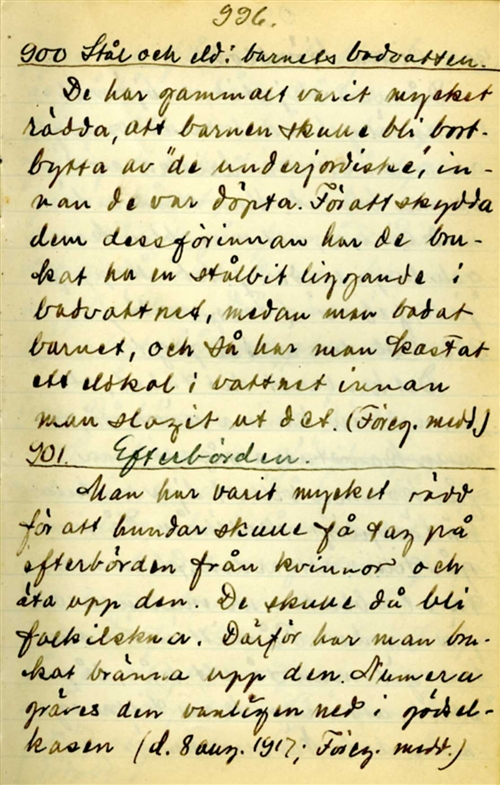 996.
900 Stål och eld i barnets badvatten.
De har gammalt varit mycket
rädda, att barnen skulle bli bort-
bytta av "de underjordiske", in-
nan de var döpta. För att skydda
dem dessförinnan har de bru-
kat ha en stålbit liggande i
badvattnet, medan man badat
barnet, och så har man kastat
ett eldkol i vattnet innan
man slagit ut det. (Föreg. medd.)
901. Efterbörden.
Man har varit mycket rädd
för att hundar skulle få tag på
efterbörden från kvinnor och
äta upp den. De skulle då bli
folkilskna. Därför har man bru-
kat bränna upp den. Numera
gräves den vanligen ned i gödsel-
kasen (d. 8 aug. 1917; Föreg. medd.)